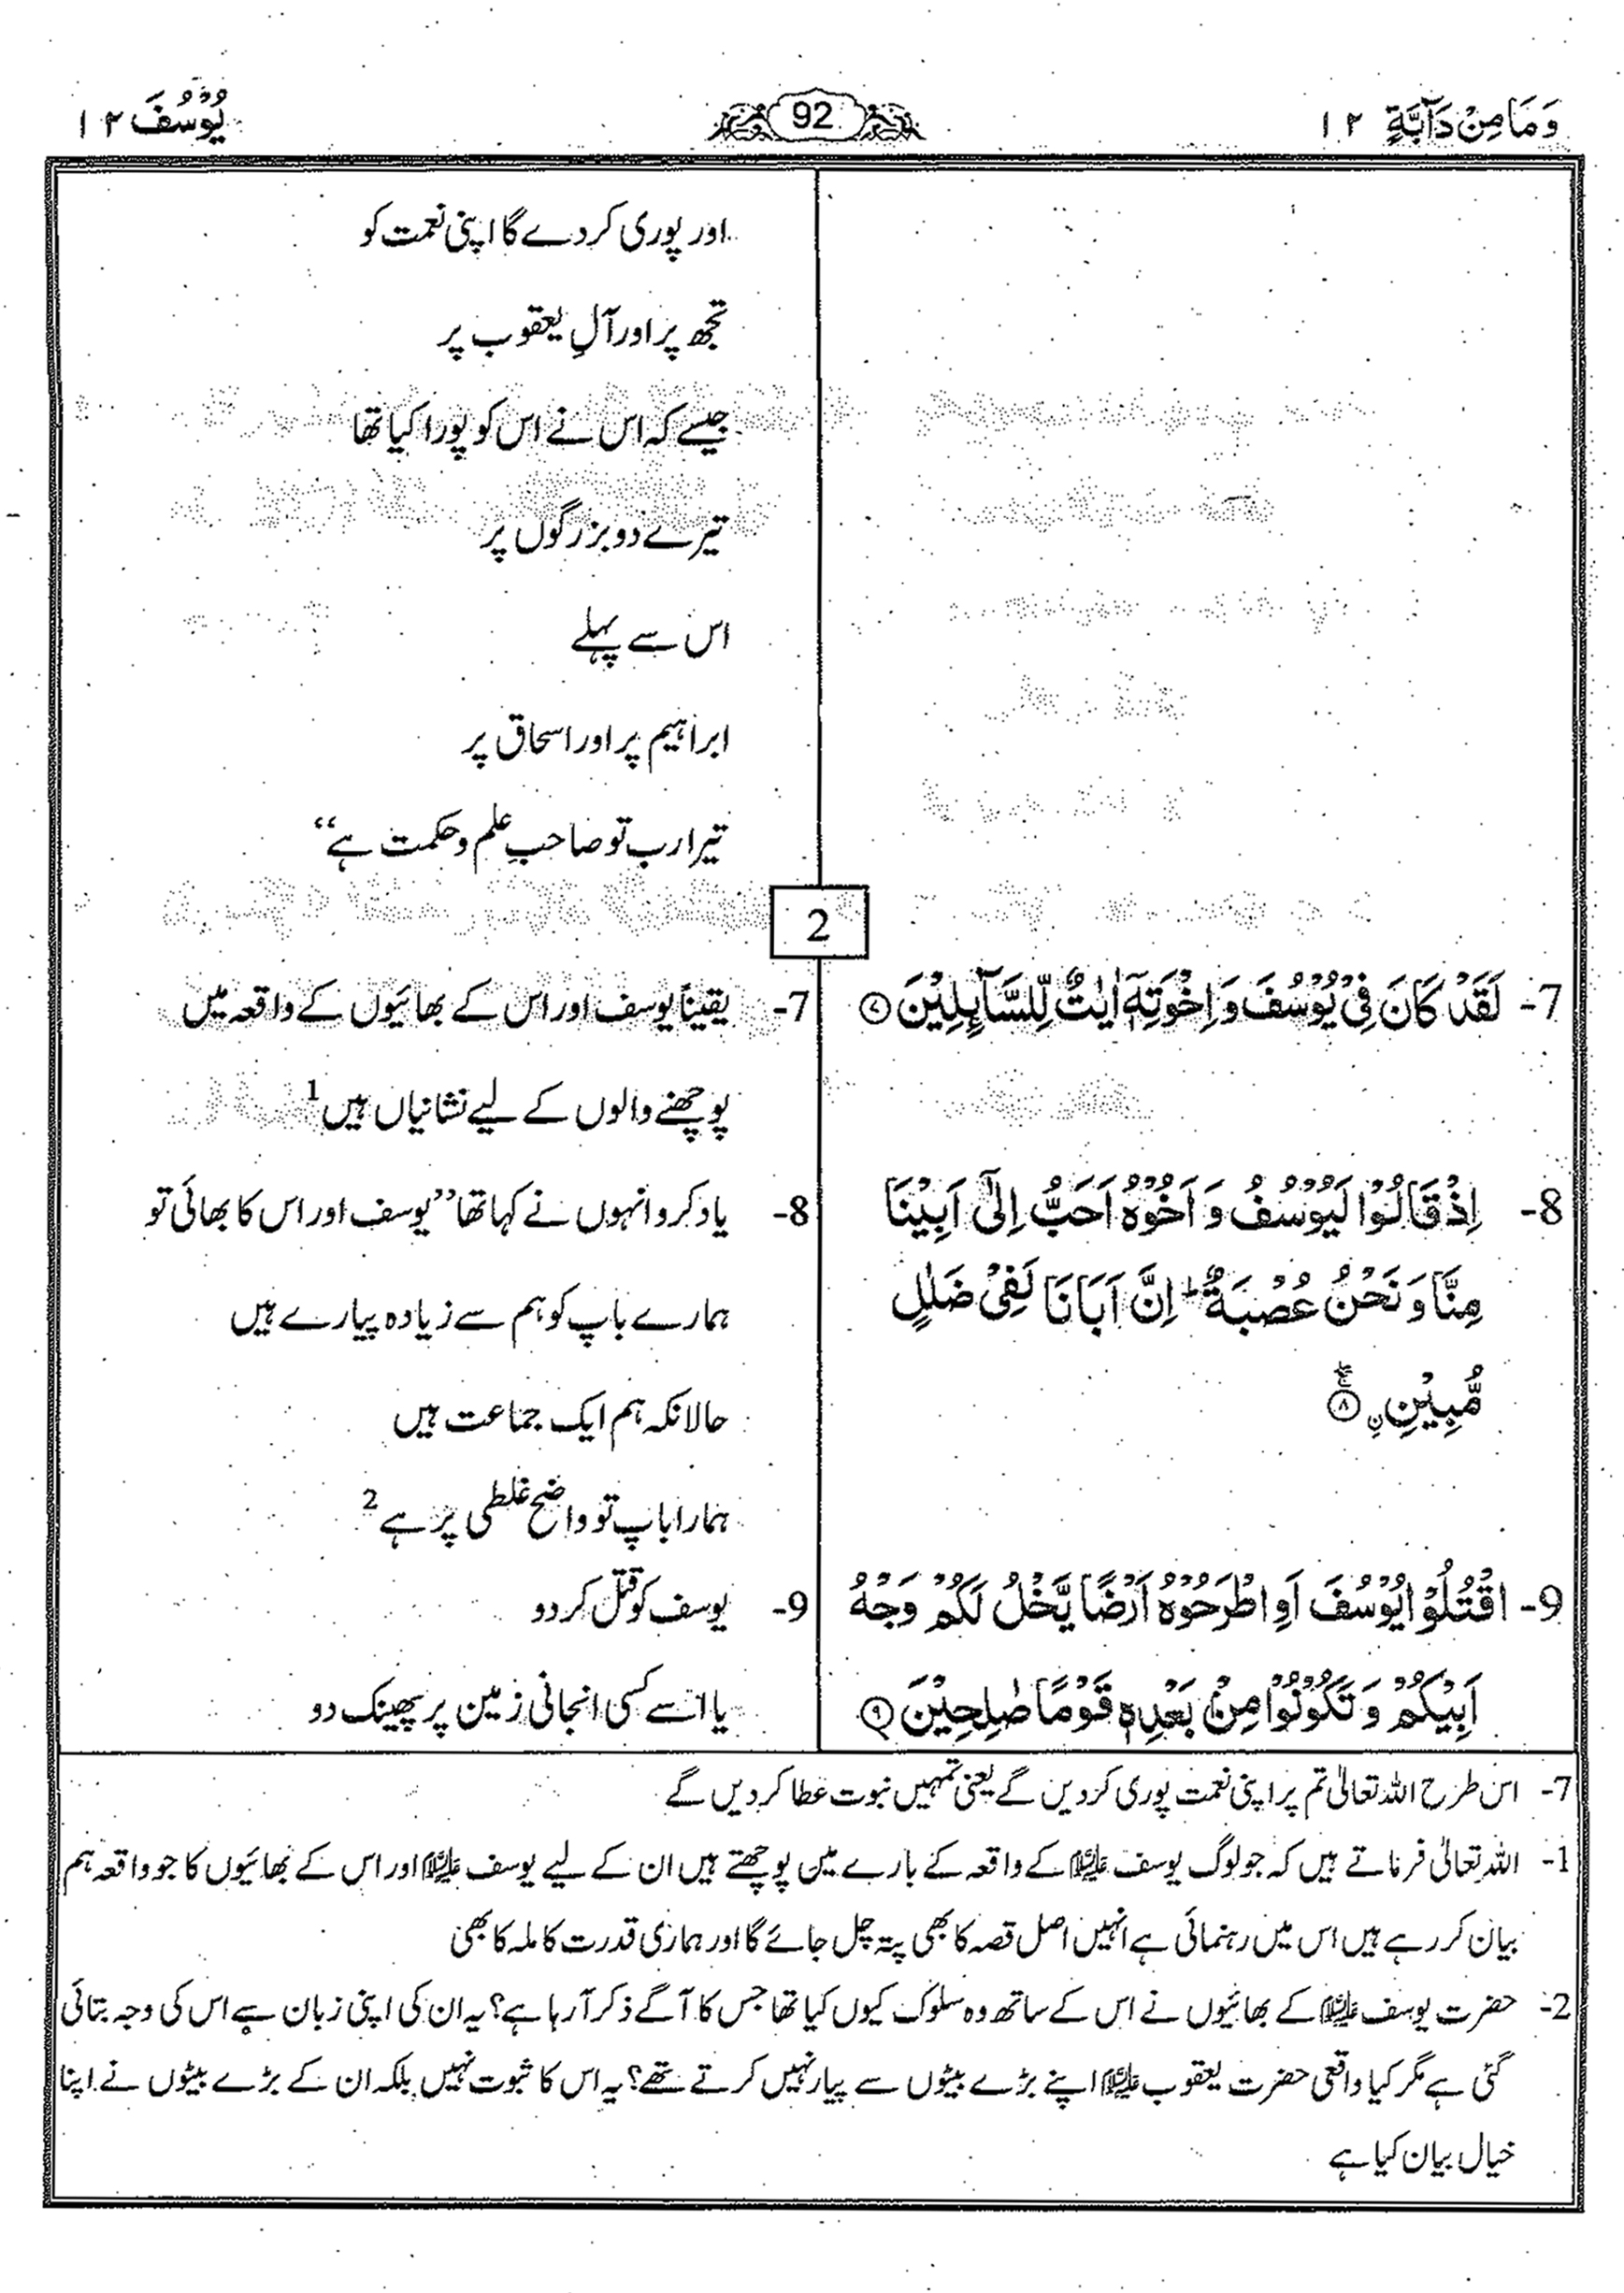 وَمَا مِنْ دَآبَّةٍ ۱۲
92
يُوْسُفَ ۱۲
اور پوری کر دے گا اپنی نعمت کو
تجھ پر اور آلِ یعقوب پر
جیسے کہ اس نے اس کو پورا کیا تھا
تیرے دو بزرگوں پر
اس سے پہلے
ابراہیم پر اور اسحاق پر
تیرا رب تو صاحبِ علم و حکمت ہے‘‘
2
7- لَقَدْ كَانَ فِيْ يُوْسُفَ وَ اِخْوَتِهٖٓ اٰيٰتٌ لِّلسَّآىِٕلِيْنَ ۷
7- یقیناً یوسف اور اس کے بھائیوں کے واقعہ میں
پوچھنے والوں کے لیے نشانیاں ہیں 1
8- اِذْ قَالُوْا لَيُوْسُفُ وَ اَخُوْهُ اَحَبُّ اِلٰٓى اَبِيْنَا
مِنَّا وَ نَحْنُ عُصْبَةٌ ؕ اِنَّ اَبَانَا لَفِيْ ضَلٰلٍ
مُّبِيْنِ ۨ ۸
8- یاد کرو انہوں نے کہا تھا ’’یوسف اور اس کا بھائی تو
ہمارے باپ کو ہم سے زیادہ پیارے ہیں
حالانکہ ہم ایک جماعت ہیں
ہمارا باپ تو واضح غلطی پر ہے 2
9- اقْتُلُوْا يُوْسُفَ اَوِ اطْرَحُوْهُ اَرْضًا يَّخْلُ لَكُمْ وَجْهُ
اَبِيْكُمْ وَ تَكُوْنُوْا مِنْۢ بَعْدِهٖ قَوْمًا صٰلِحِيْنَ ۹
9- یوسف کو قتل کر دو
یا اسے کسی انجانی زمین پر پھینک دو
7- اس طرح اللہ تعالیٰ تم پر اپنی نعمت پوری کر دیں گے یعنی تمہیں نبوت عطا کر دیں گے
1- اللہ تعالیٰ فرماتے ہیں کہ جو لوگ یوسف علیہ السلام کے واقعہ کے بارے میں پوچھتے ہیں ان کے لیے یوسف علیہ السلام اور اس کے بھائیوں کا جو واقعہ ہم
بیان کر رہے ہیں اس میں رہنمائی ہے انہیں اصل قصہ کا بھی پتہ چل جائے گا اور ہماری قدرت کاملہ کا بھی
2- حضرت یوسف علیہ السلام کے بھائیوں نے اس کے ساتھ وہ سلوک کیوں کیا تھا جس کا آگے ذکر آ رہا ہے؟ یہ ان کی اپنی زبان سے اس کی وجہ بتائی
گئی ہے مگر کیا واقعی حضرت یعقوب علیہ السلام اپنے بڑے بیٹوں سے پیار نہیں کرتے تھے؟ یہ اس کا ثبوت نہیں بلکہ ان کے بڑے بیٹوں نے اپنا
خیال بیان کیا ہے